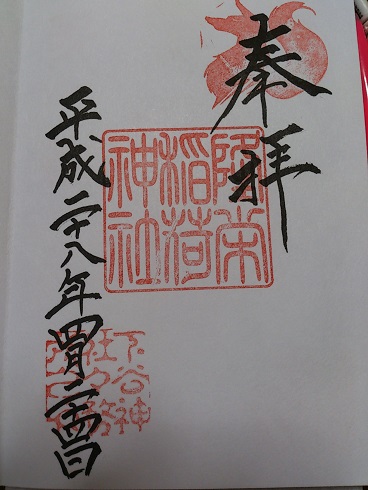 奉拝
隆栄
稲荷
神社
平成二十八年四月二十四日
下谷神
社々務